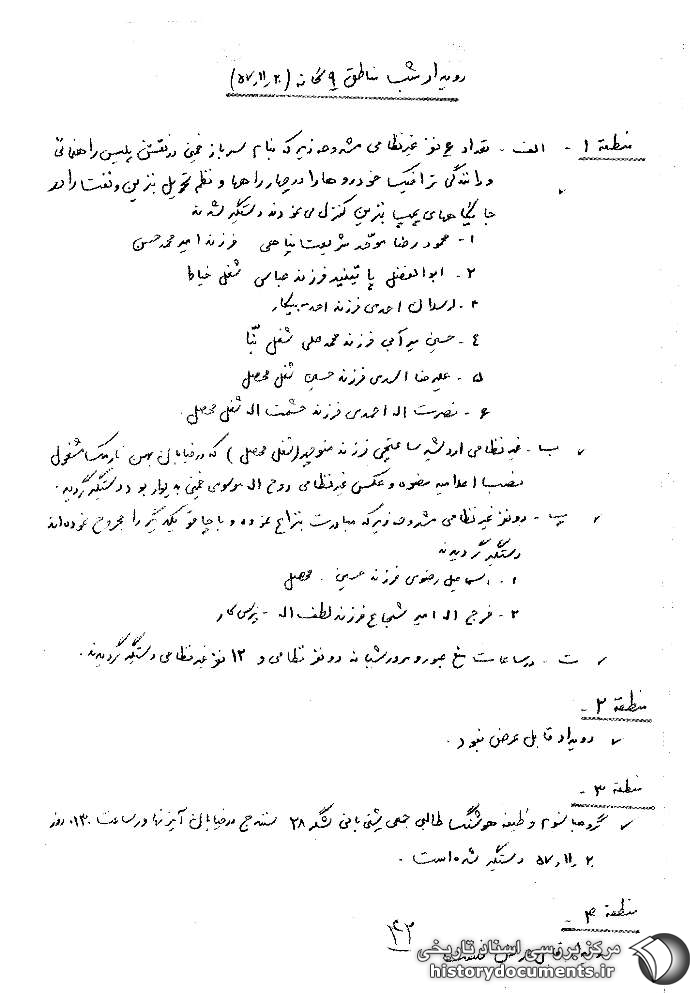 رویداد شب مناطق ۹ گانه (۵۷٫۱۱٫۲)
منطقه ۱ - الف - تعداد ۶ نفر غیرنظامی مشروحه زیر که بنام سرباز خمینی در نقش پلیس راهنمائی
و رانندگی ترافیک خودروها را در چهارراهها و نظم تحویل بنزین و نفت را در
جایگاههای پمپ بنزین کنترل می نمودند دستگیر شدند
۱- محمود رضا موحد شریعت پناهی فرزند امیر محمدحسن
۲- ابوالفضل فرزند عباس شغل خیاط
۳- احمدی فرزند احمد بیکار
٤- حسین میرآبی فرزند محمدعلی شغل بنّا
۵- علیرضا اسدی فرزند حسین شغل محصل
۶- نصرت اله احمدی فرزند حشمت اله شغل محصل.
ب- غیرنظامی اردشیر ساعتچی فرزند منوچهر (شغل محصل) که در خیابان بهمن نارمک مشغول
نصب اعلامیه مضره و عکس غیرنظامی روح اله موسوی خمینی به دیوار بود دستگیر گردید.
پ- دو نفر غیرنظامی مشروحه زیر که مبادرت بنزاع نموده و با چاقو یکدیگر را مجروح نموده اند
دستگیر گردیدند
۱- اسماعیل رضوی فرزند حسین. محصل
۲- فرج اله امیر شجاع فرزند لطف اله - پرسکار
ت- در ساعات منع عبور و مرور شبانه دو نفر نظامی و ۱۲ نفر غیرنظامی دستگیر گردیدند.
منطقه ۲-
رویداد قابل عرض نبود.
منطقه ۳-
گروهبانسوم وظیفه هوشنگ طالبی جمعی پشتیبانی لشکر ۲۸ سنندج در خیابان آیزنهاور ساعت ۱۳۰۰ روز
۵۷٫۱۱٫۲ دستگیر شده است.
منطقه ۴-
۴۳
مرکز بررسی اسناد تاریخی
historydocuments.ir